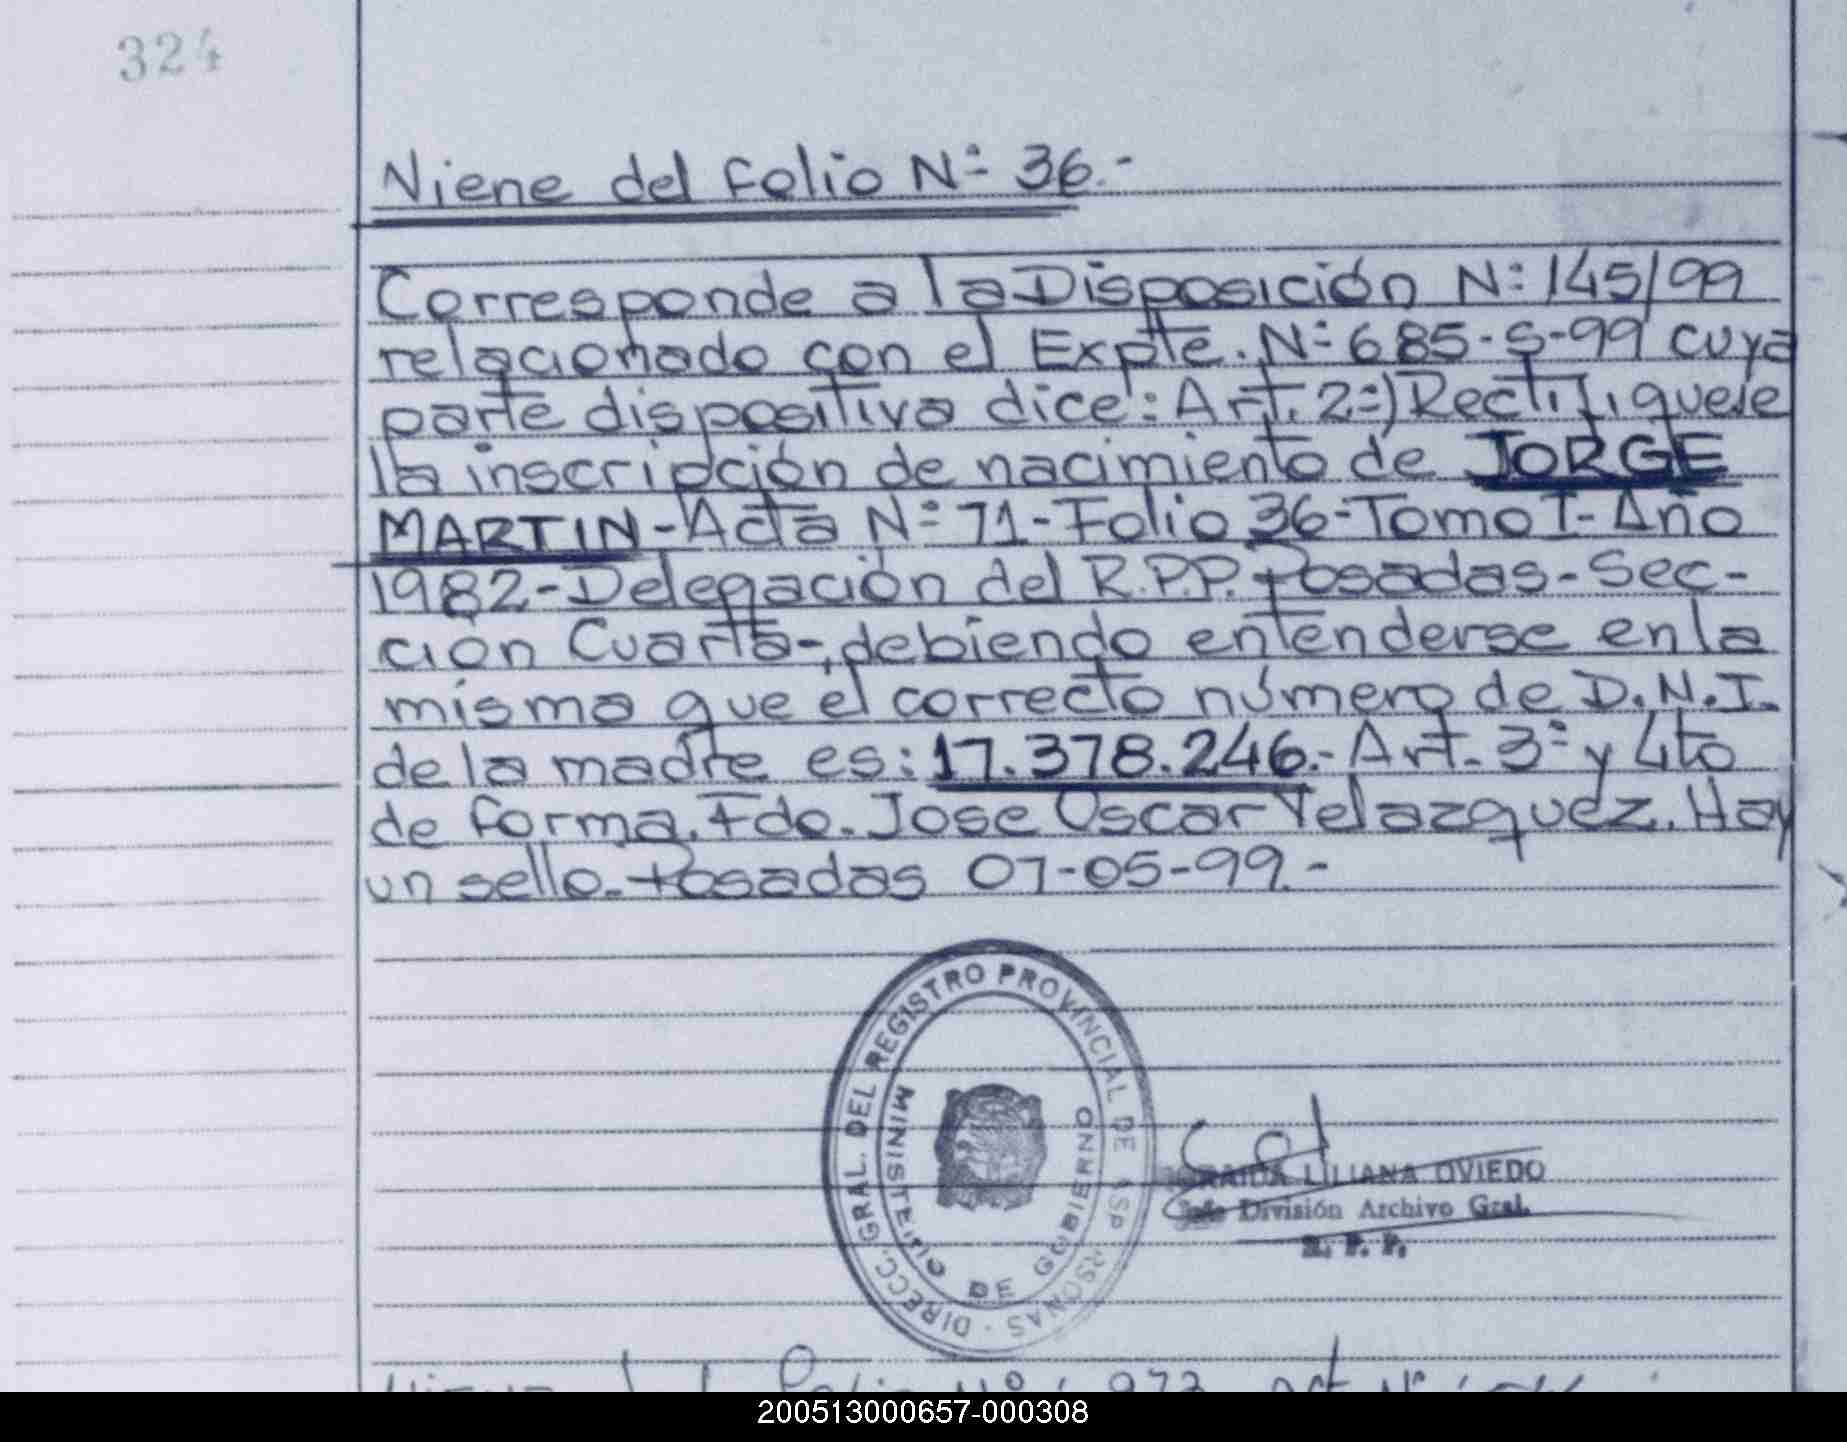 324
Viene del folio Nº 36.-
Corresponde a la Disposición Nº 145/99
relacionado con el Expte. Nº 685-S-99 cuya
parte dispositiva dice: Art. 2º) Rectifiquese
la inscripción de nacimiento de JORGE
MARTIN-Acta Nº 71-Folio 36-Tomo I-Año
1982-Delegación del R.P.P. Posadas-Sec-
ción Cuarta-, debiendo entenderse en la
misma que el correcto número de D.N.I.
de la madre es: 17.378.246.- Art. 3º y 4to
de forma. Fdo. Jose Oscar Velazquez. Hay
un sello. Posadas 07-05-99.-
DIRECC. GRAL. DEL REGISTRO PROVINCIAL DE LAS PERSONAS
MINISTERIO DE GOBIERNO
LILIANA OVIEDO
Jefe División Archivo Gral.
R. P. P.
200513000657-000308